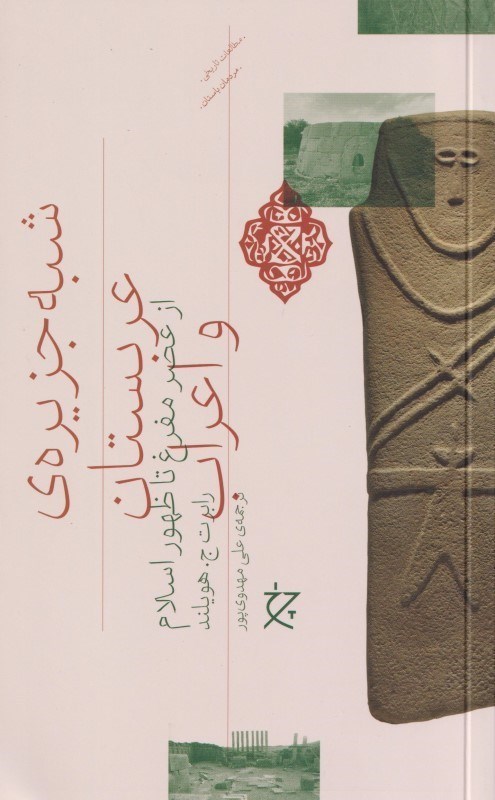 شبه جزیره‌ی
عربستان
و اعراب
از عصر مفرغ تا ظهور اسلام
رابرت ج. هویلند
ترجمه‌ی علی مهدوی‌پور
.مطالعات تاریخی.
.مردمان باستان.